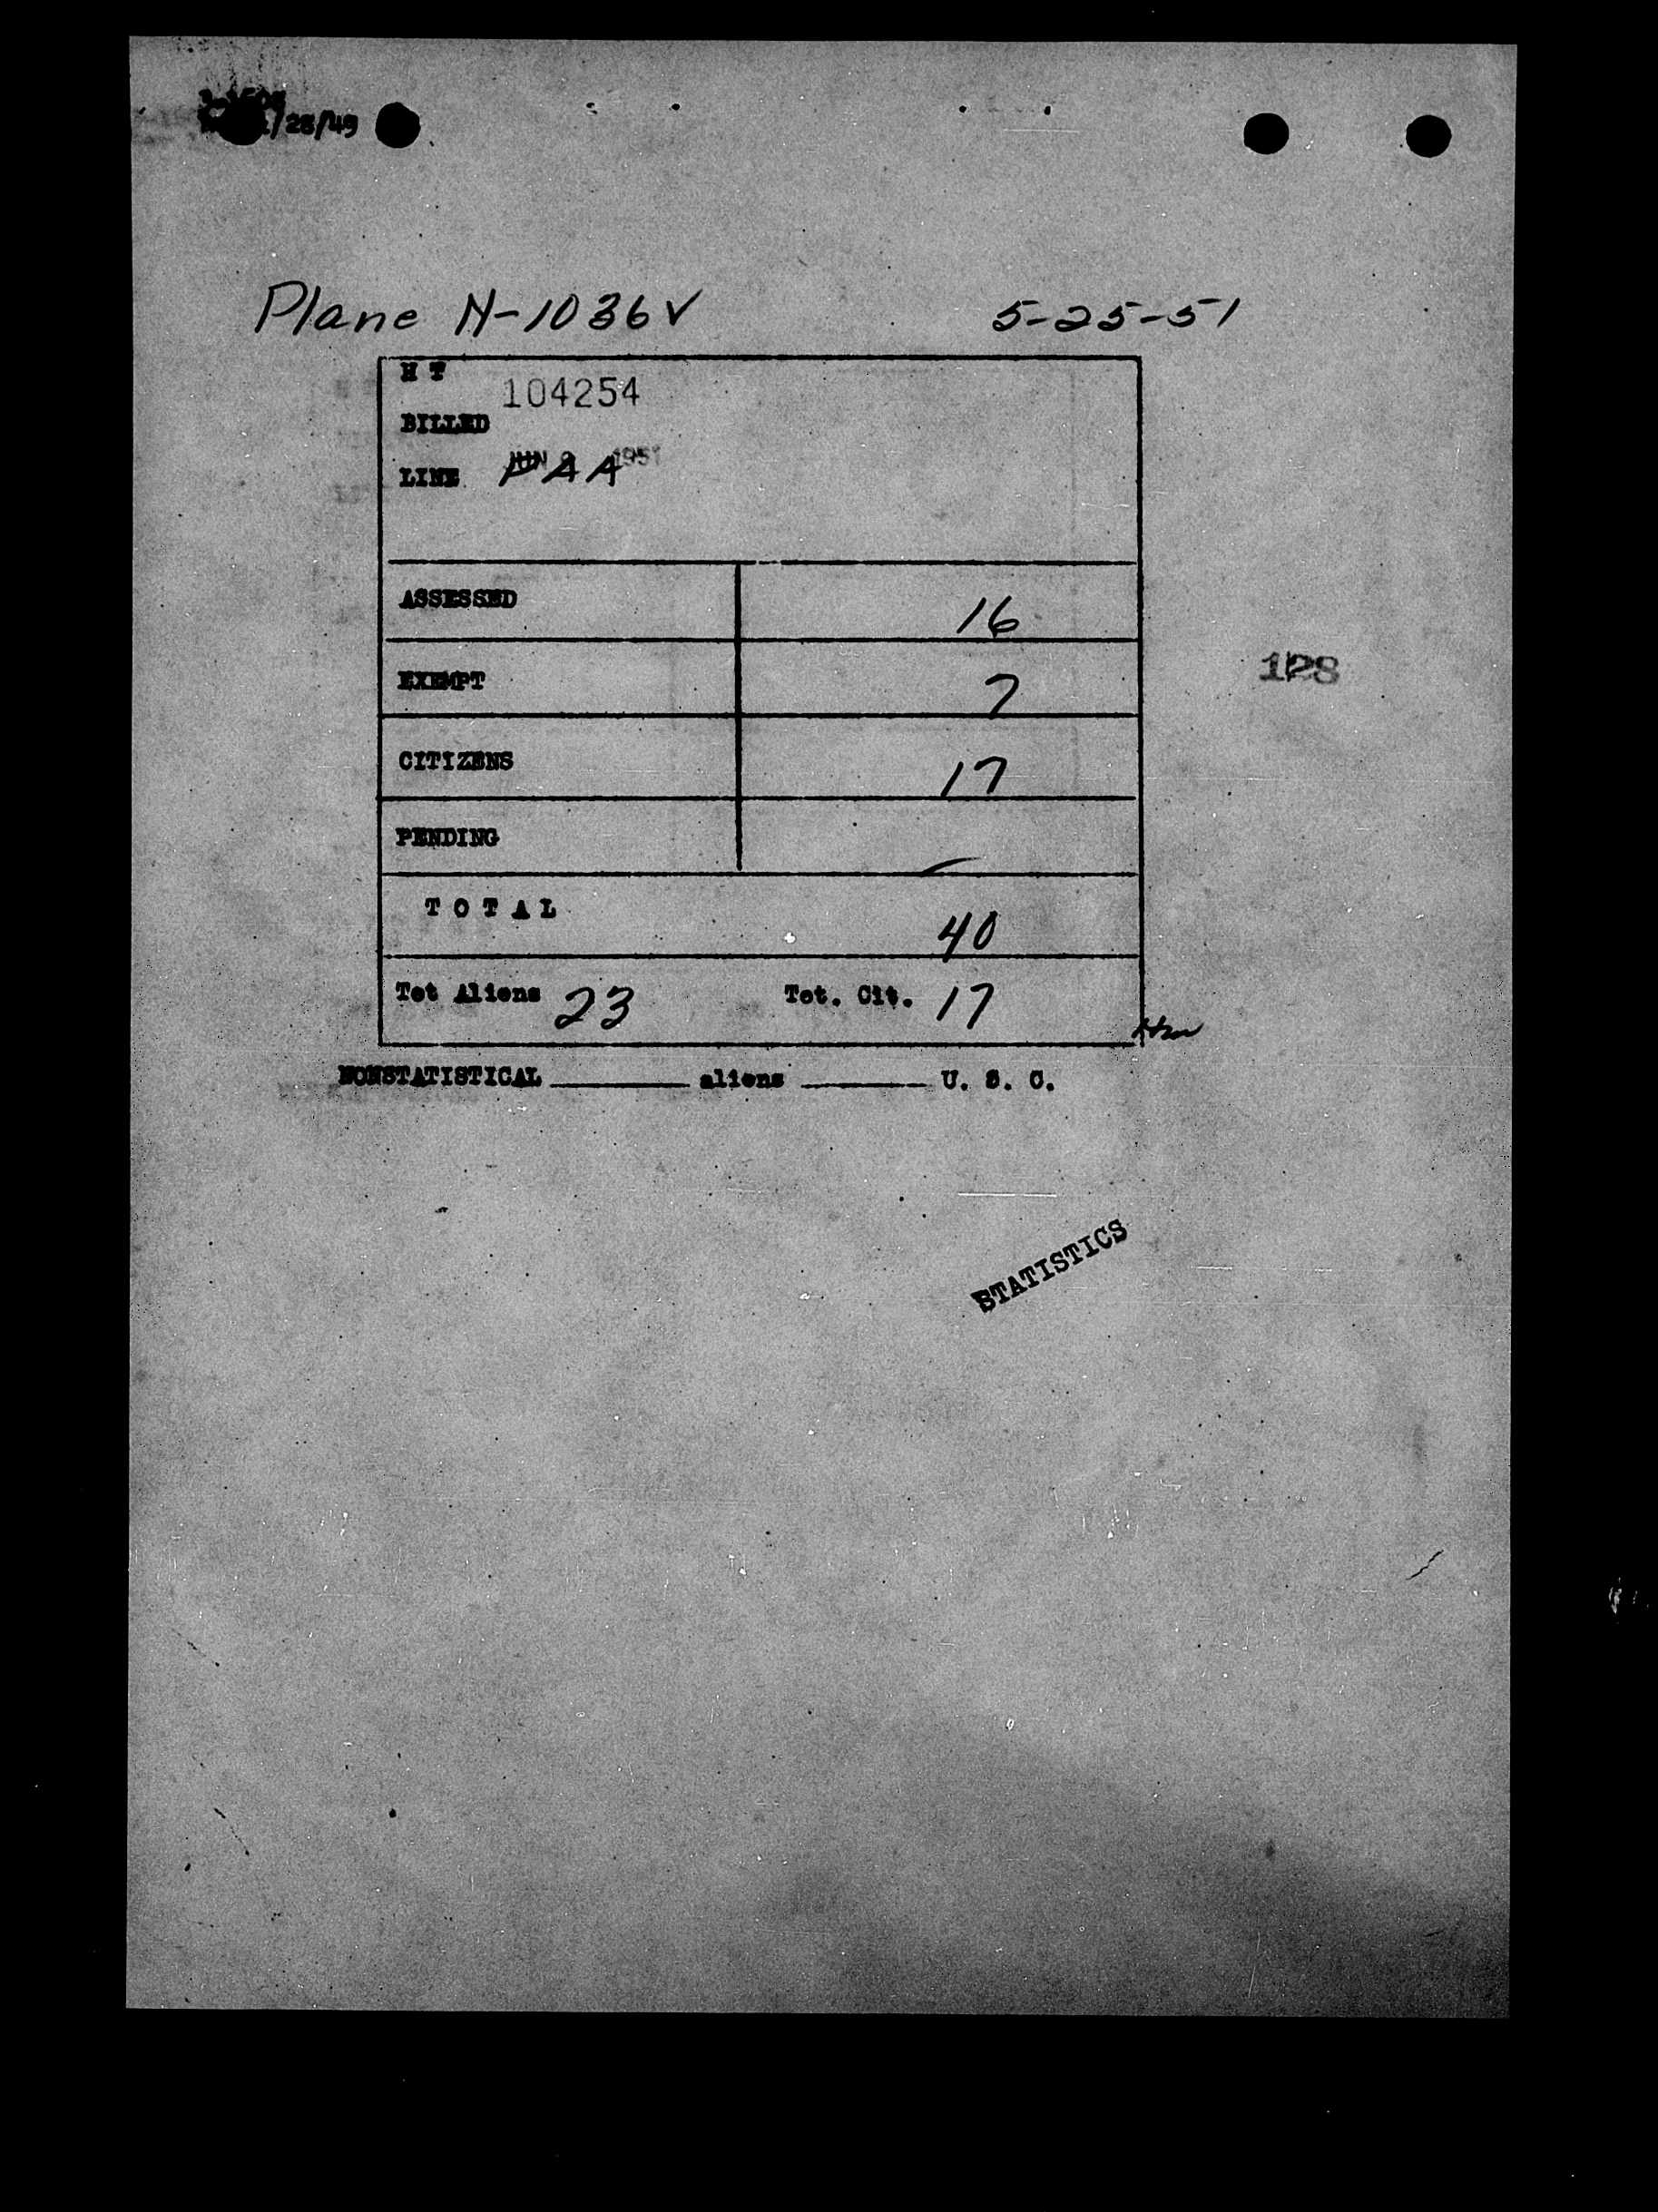 /28/49
Plane N-1036V 5-25-51
H T
104254
BILLED
JUN 1951
LINE PAA
ASSESSED 16
EXEMPT 7
128
CITIZENS 17
PENDING
TOTAL 40
Tot Aliens 23 Tot. Cit. 17
NONSTATISTICAL ________ aliens ________ U. S. C.
STATISTICS